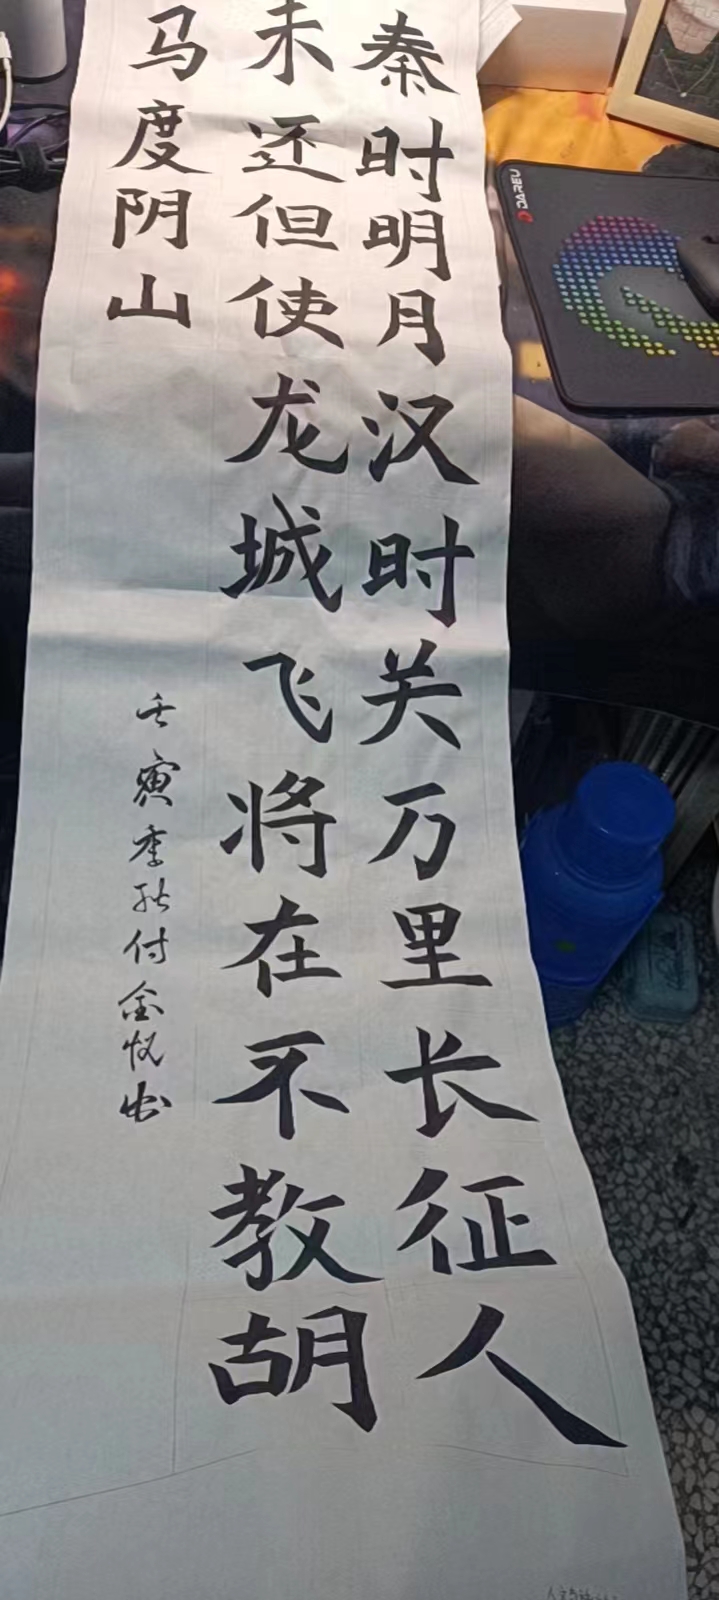 秦时明月汉时关万里长征人
未还但使龙城飞将在不教胡
马度阴山
壬寅季秋付金悦书
DAREU